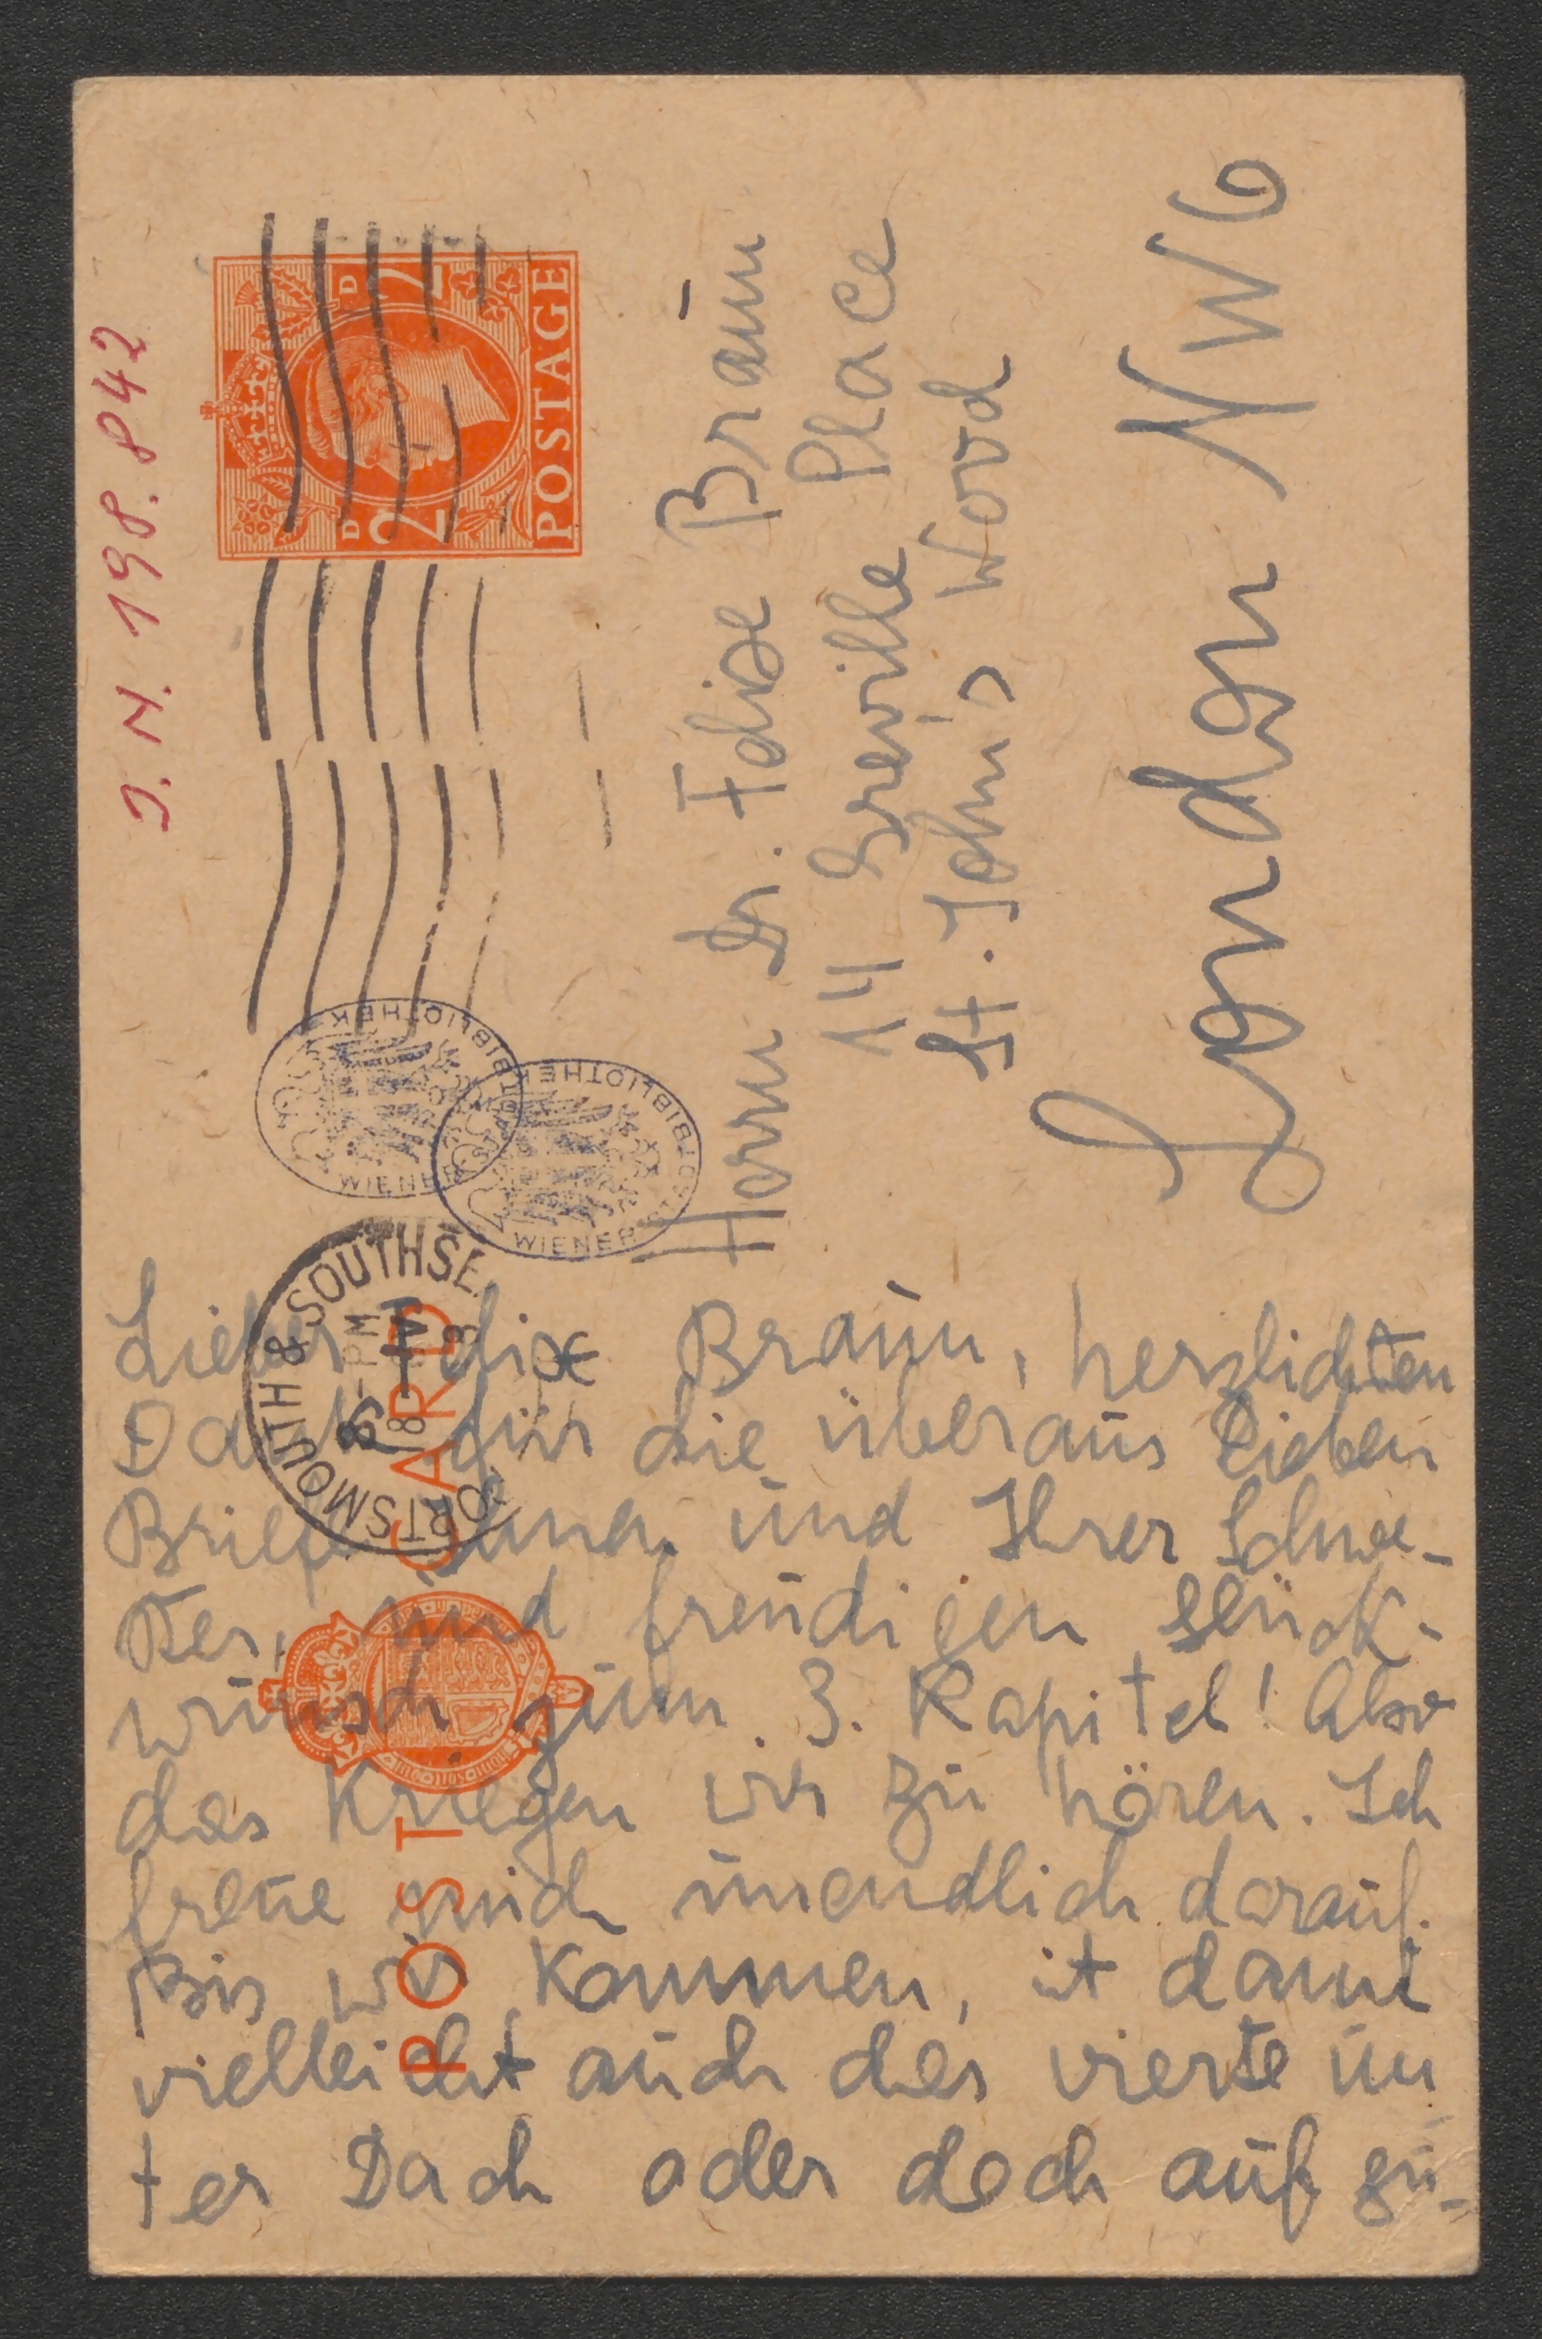 I. N. 198.842
2 D 2 D
POSTAGE
WIENER STADTBIBLIOTHEK
WIENER STADTBIBLIOTHEK
PORTSMOUTH & SOUTHSE
PM
18
POST CARD
Herrn Dr. Felix Braun
14 Greville Place
St. John's Wood
London NW6
Lieber Felix Braun, herzlichsten
Dank für die überaus lieben
Briefe, Ihnen und Ihrer Schwe-
ster, und freudigen Glück-
wunsch zum 3. Kapitel! Also
das kriegen wir zu hören. Ich
freue mich unendlich darauf.
Bis wir kommen, ist dann
vielleicht auch das vierte un
ter Dach oder doch auf gu-